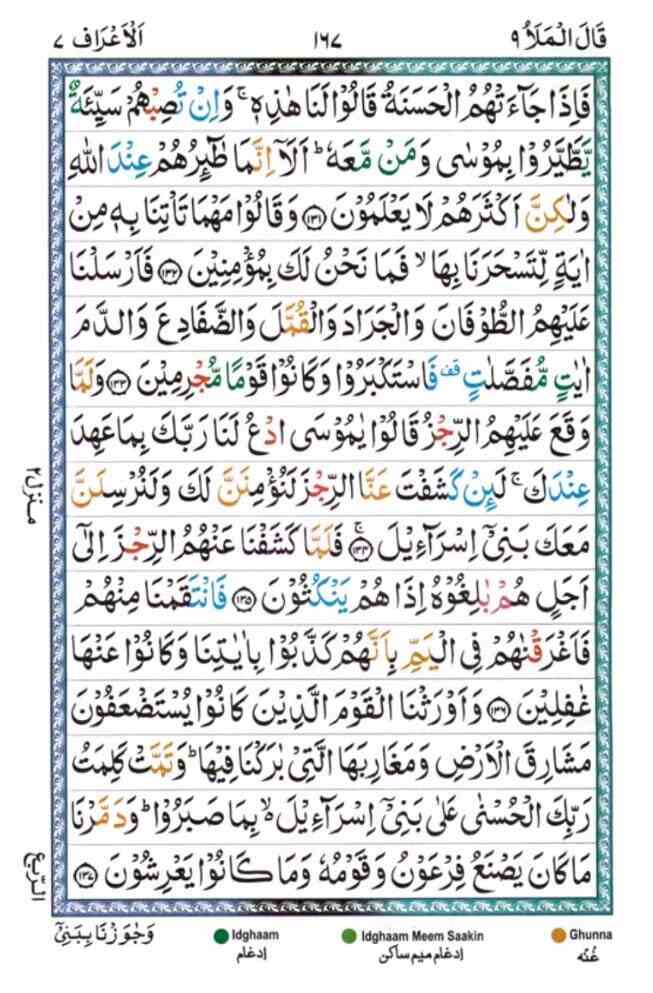 قَالَ الْمَلَاُ ٩ ١٦٧ اَلْاَعْرَاف ٧
فَاِذَا جَآءَتْهُمُ الْحَسَنَةُ قَالُوْا لَنَا هٰذِهٖ ۚ وَاِنْ تُصِبْهُمْ سَيِّئَةٌ
يَّطَّيَّرُوْا بِمُوْسٰى وَمَنْ مَّعَهٗ ؕ اَلَاۤ اِنَّمَا طٰٓئِرُهُمْ عِنْدَ اللّٰهِ
وَلٰكِنَّ اَكْثَرَهُمْ لَا يَعْلَمُوْنَ ﴿١٣١﴾ وَقَالُوْا مَهْمَا تَاْتِنَا بِهٖ مِنْ
اٰيَةٍ لِّتَسْحَرَنَا بِهَا ۙ فَمَا نَحْنُ لَكَ بِمُؤْمِنِيْنَ ﴿١٣٢﴾ فَاَرْسَلْنَا
عَلَيْهِمُ الطُّوْفَانَ وَالْجَرَادَ وَالْقُمَّلَ وَالضَّفَادِعَ وَالدَّمَ
اٰيٰتٍ مُّفَصَّلٰتٍ قف فَاسْتَكْبَرُوْا وَكَانُوْا قَوْمًا مُّجْرِمِيْنَ ﴿١٣٣﴾ وَلَمَّا
وَقَعَ عَلَيْهِمُ الرِّجْزُ قَالُوْا يٰمُوْسَى ادْعُ لَنَا رَبَّكَ بِمَا عَهِدَ
عِنْدَكَ ۚ لَئِنْ كَشَفْتَ عَنَّا الرِّجْزَ لَنُؤْمِنَنَّ لَكَ وَلَنُرْسِلَنَّ
مَعَكَ بَنِيْۤ اِسْرَآءِيْلَ ﴿١٣٤﴾ ۚ فَلَمَّا كَشَفْنَا عَنْهُمُ الرِّجْزَ اِلٰٓى
اَجَلٍ هُمْ بٰلِغُوْهُ اِذَا هُمْ يَنْكُثُوْنَ ﴿١٣٥﴾ فَانْتَقَمْنَا مِنْهُمْ
فَاَغْرَقْنٰهُمْ فِى الْيَمِّ بِاَنَّهُمْ كَذَّبُوْا بِاٰيٰتِنَا وَكَانُوْا عَنْهَا
غٰفِلِيْنَ ﴿١٣٦﴾ وَاَوْرَثْنَا الْقَوْمَ الَّذِيْنَ كَانُوْا يُسْتَضْعَفُوْنَ
مَشَارِقَ الْاَرْضِ وَمَغَارِبَهَا الَّتِيْ بٰرَكْنَا فِيْهَا ؕ وَتَمَّتْ كَلِمَتُ
رَبِّكَ الْحُسْنٰى عَلٰى بَنِيْۤ اِسْرَآءِيْلَ ۙ بِمَا صَبَرُوْا ؕ وَدَمَّرْنَا
مَا كَانَ يَصْنَعُ فِرْعَوْنُ وَقَوْمُهٗ وَمَا كَانُوْا يَعْرِشُوْنَ ﴿١٣٧﴾
منزل ٢
الربع
وَجٰوَزْنَا بِبَنِيْۤ
Idghaam Idghaam Meem Saakin Ghunna
ادغام ادغام ميم ساكن غُنّه